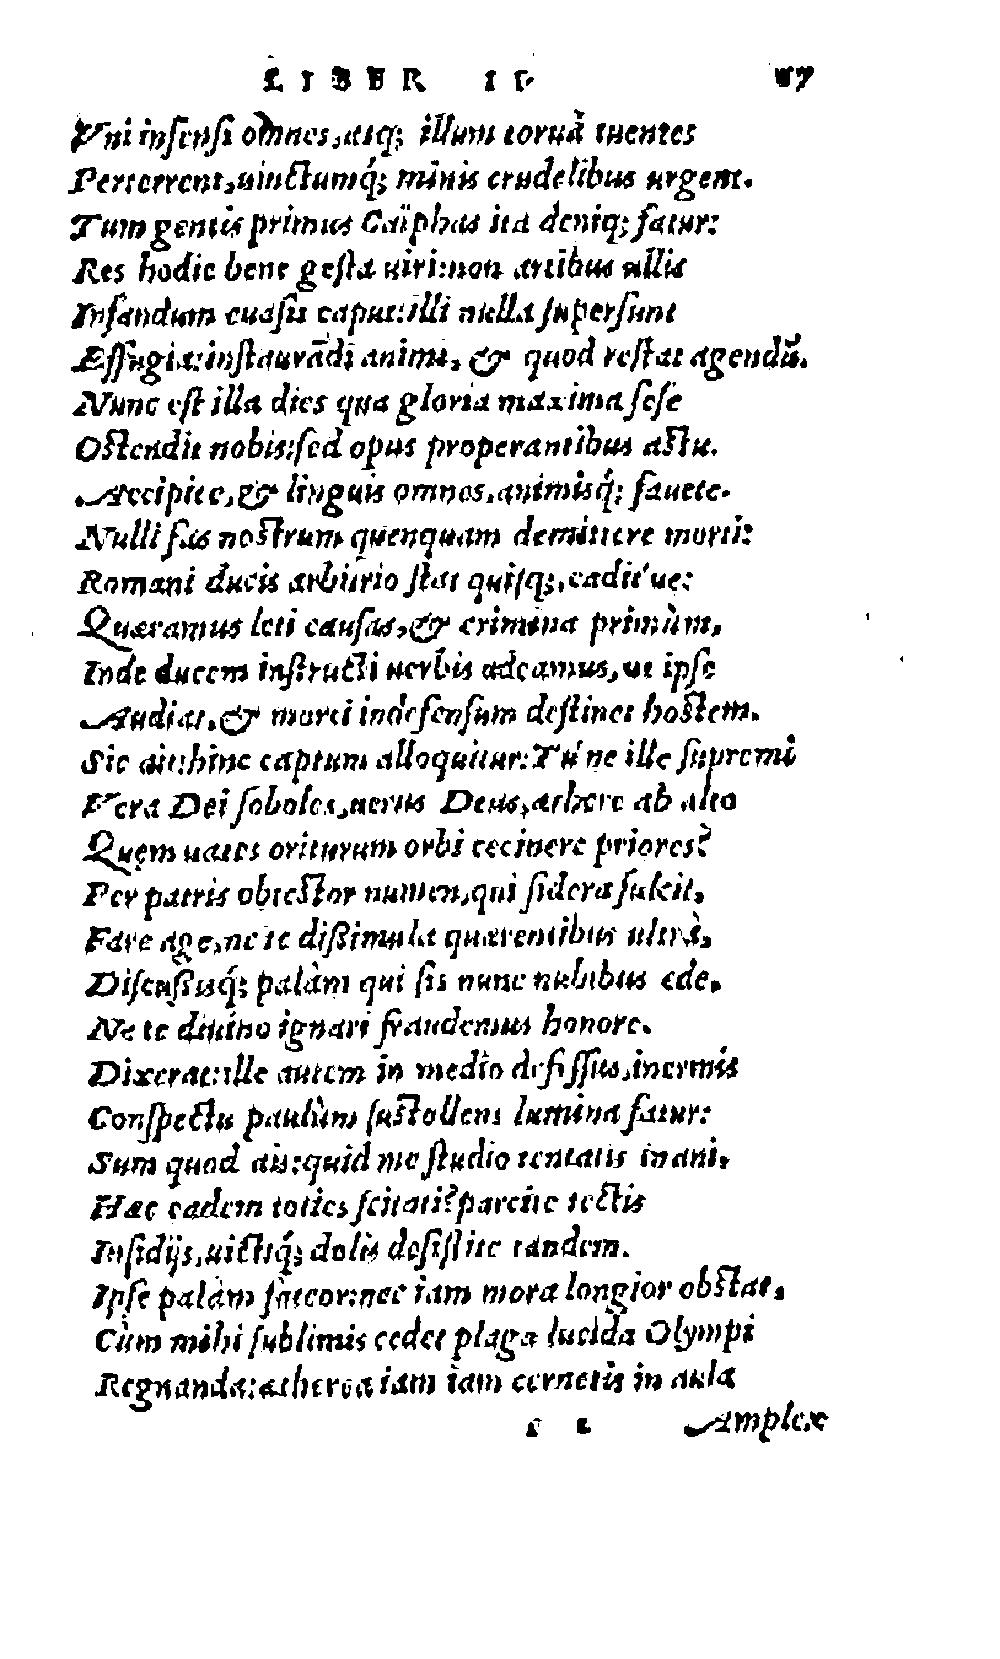 LIBER II
Vni infensi omnes, atq; illum toruà tuentes
Perterrent, uinctumq́; minis crudelibus urgent.
Tum gentis primus Caïphas ita deniq; fatur:
Res hodie bene gesta uiri: non artibus ullis
Infandum euasit caput: illi nulla supersunt
Effugia: instaurādi animi, & quod restat agendū.
Nunc est illa dies qua gloria maxima sese
Ostendit nobis: sed opus properantibus astu.
Accipite, & linguis omnes, animisq́; fauete.
Nulli fas nostrum quenquam demittere morti:
Romani ducis arbitrio stat quisq;, cadit'ue:
Quæramus leti causas, & crimina primùm,
Inde ducem instructi uerbis adeamus, ut ipse
Audiat, & morti indefensum destinet hostem.
Sic ait: hinc captum alloquitur: Tú ne ille supremi
Vera Dei soboles, uerus Deus, æthere ab alto
Quem uates oriturum orbi cecinere priores?
Per patris obtestor numen, qui sidera fulcit,
Fare age, ne te dißimula quærentibus ultrà,
Discußisq́; palàm qui sis nunc nubibus ede.
Ne te diuino ignari fraudemus honore.
Dixerat: ille autem in medio defissus, inermis
Conspectu paulùm sustollens lumina fatur:
Sum quod ais: quid me studio tentatis inani,
Hæc eadem toties scitati? parcite tectis
Insidijs, uictiq́; dolis desistite tandem.
Ipse palàm fateor: nec iam mora longior obstat,
Cùm mihi sublimis cedet plaga lucida Olympi
Regnanda: ætherea iam iam cernetis in aula
Amplex